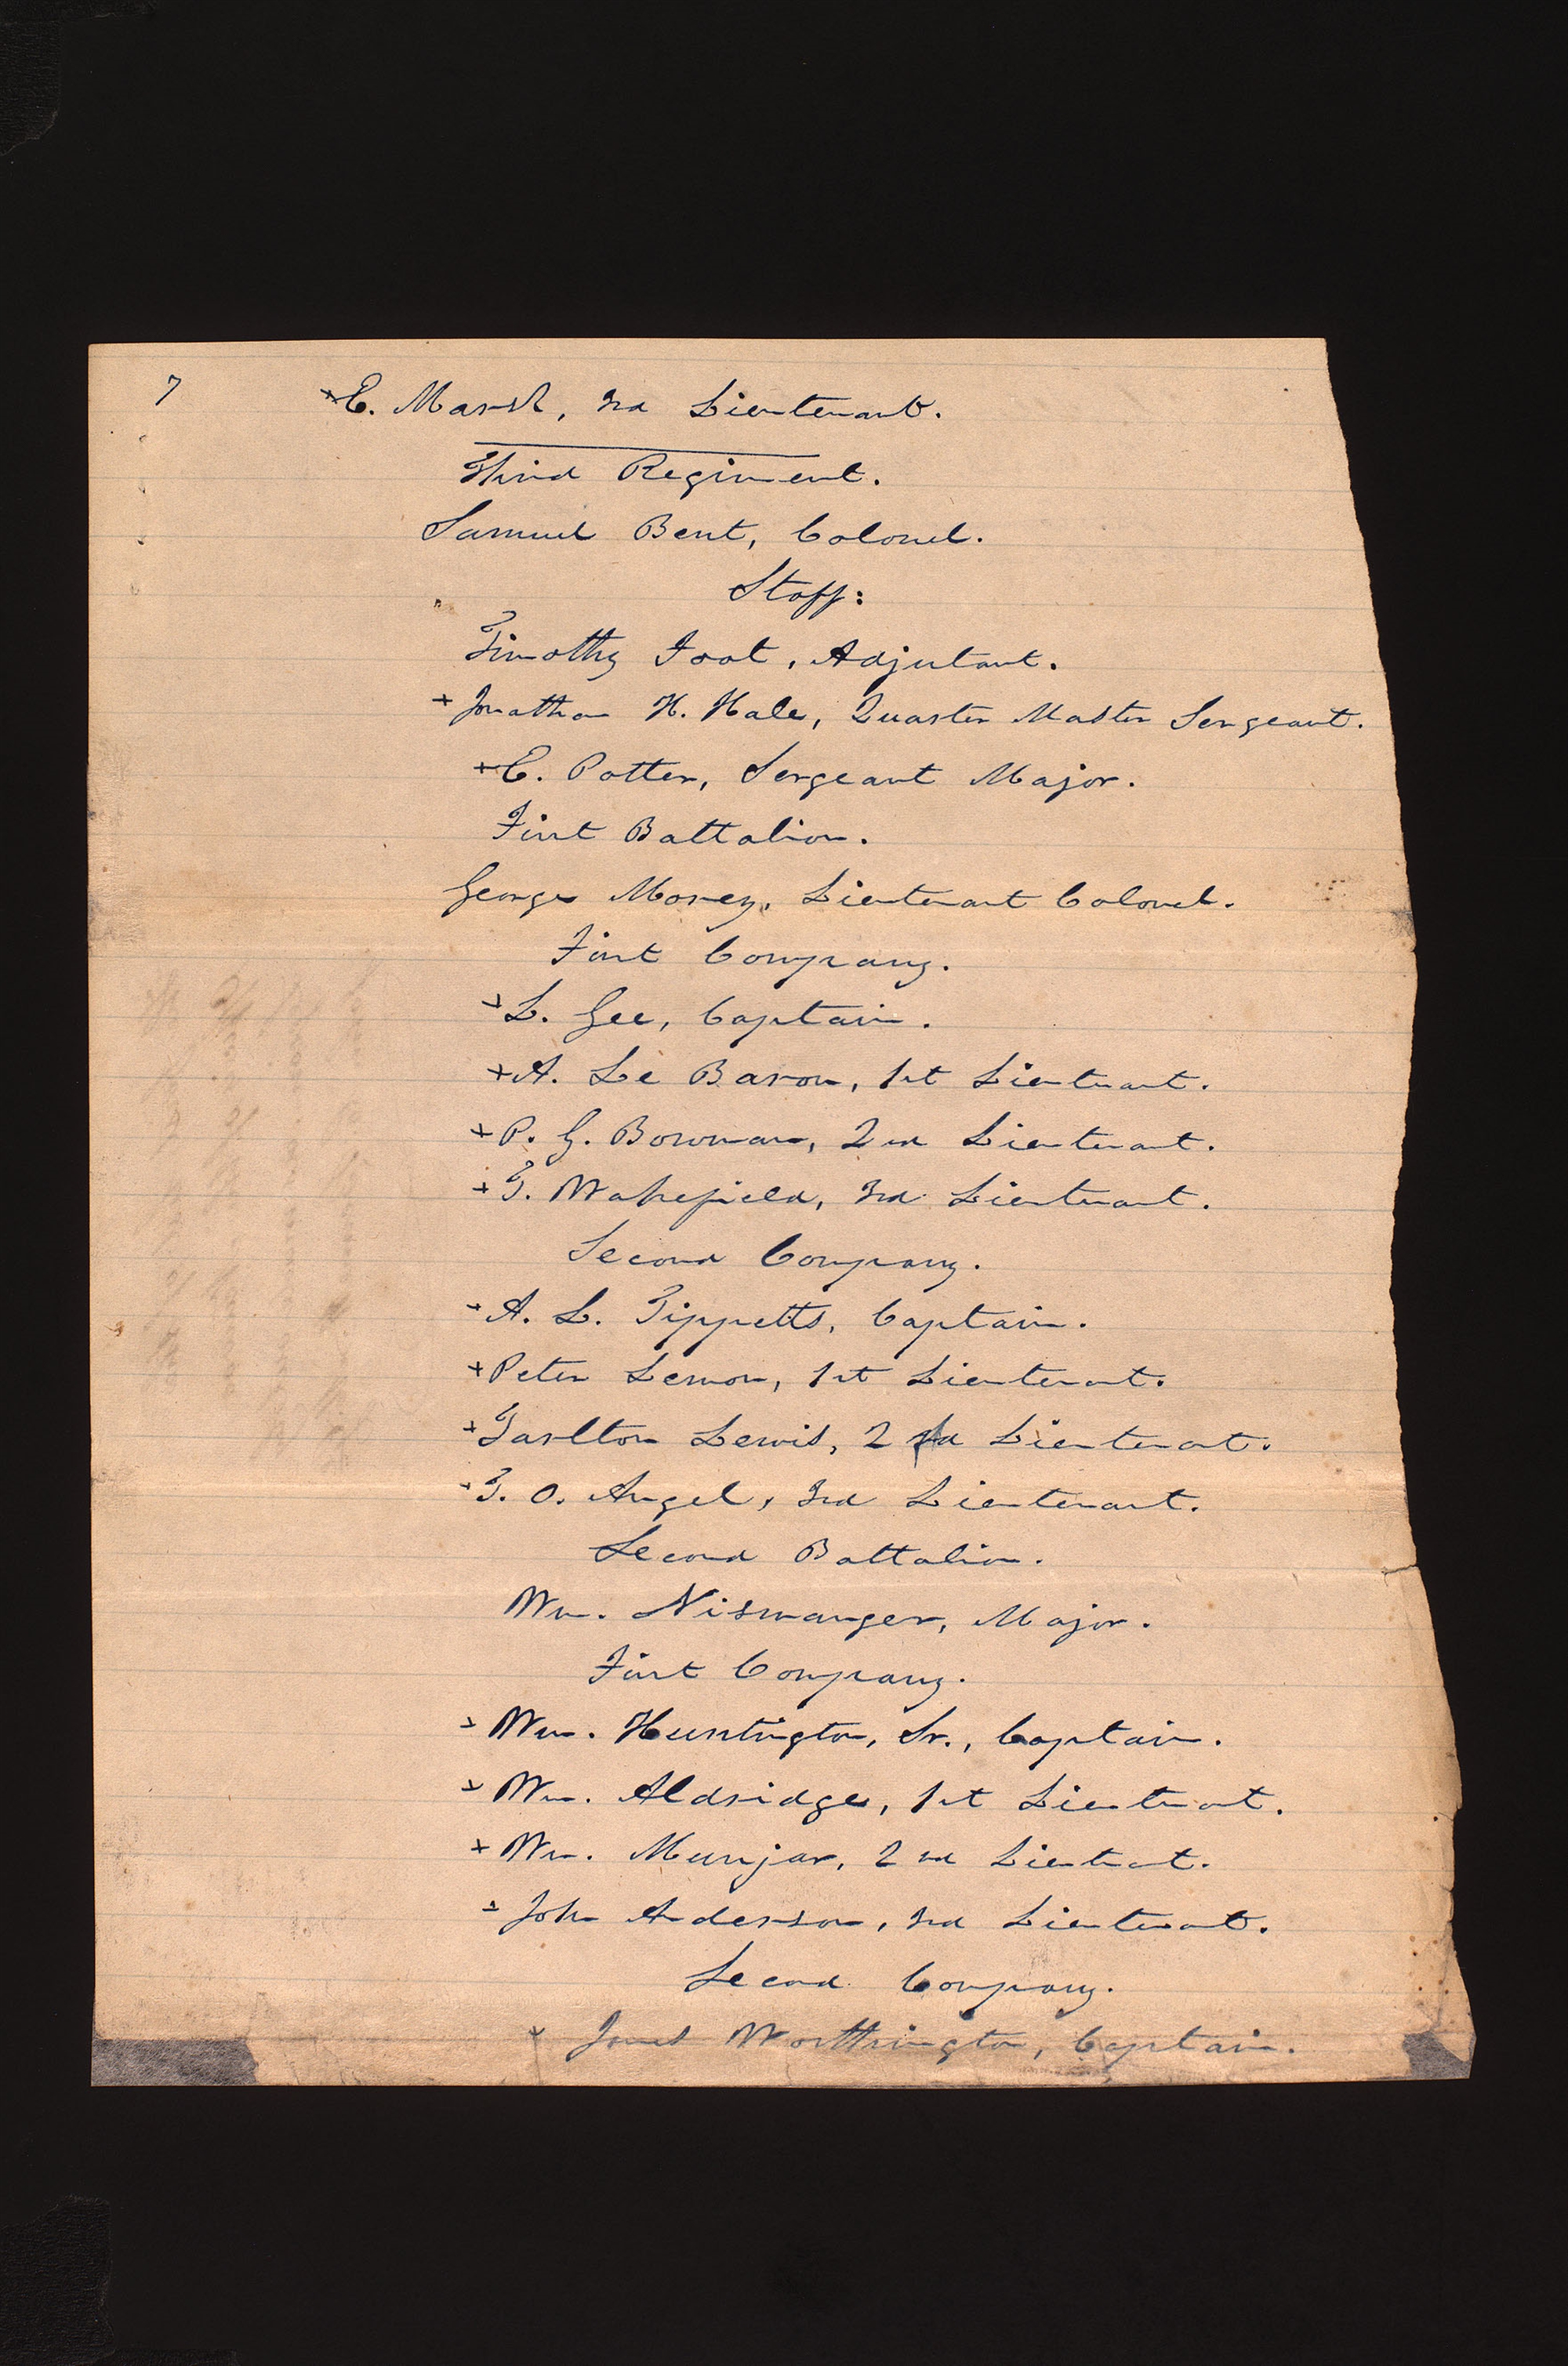 7
+E. Marsh, 3rd Lieutenant.
Third Regiment.
Samuel Bent, Colonel.
Staff:
Timothy Foot, Adjutant.
+ Jonathan H. Hale, Quarter Master Sergeant.
+E. Potter, Sergeant Major.
First Battalion.
George Morey, Lieutenant Colonel.
First Company.
+L. Gee, Captain.
+A. Le Baron, 1st Lieutenant.
+P. G. Bowman, 2nd Lieutenant.
+T. Wakefield, 3rd Lieutenant.
Second Company.
+A. L. Tippetts, Captain.
+Peter Lemon, 1st Lieutenant.
+Tarlton Lewis, 2nd Lieutenant.
+T. O. Angel, 3rd Lieutenant.
Second Battalion.
Wm. Niswanger, Major.
First Company.
+ Wm. Huntington, Sr., Captain.
+ Wm. Aldridge, 1st Lieutenant.
+ Wm. Munjar, 2nd Lieutenant.
+ John Anderson, 3rd Lieutenant.
Second Company.
+ James Worthington, Captain.